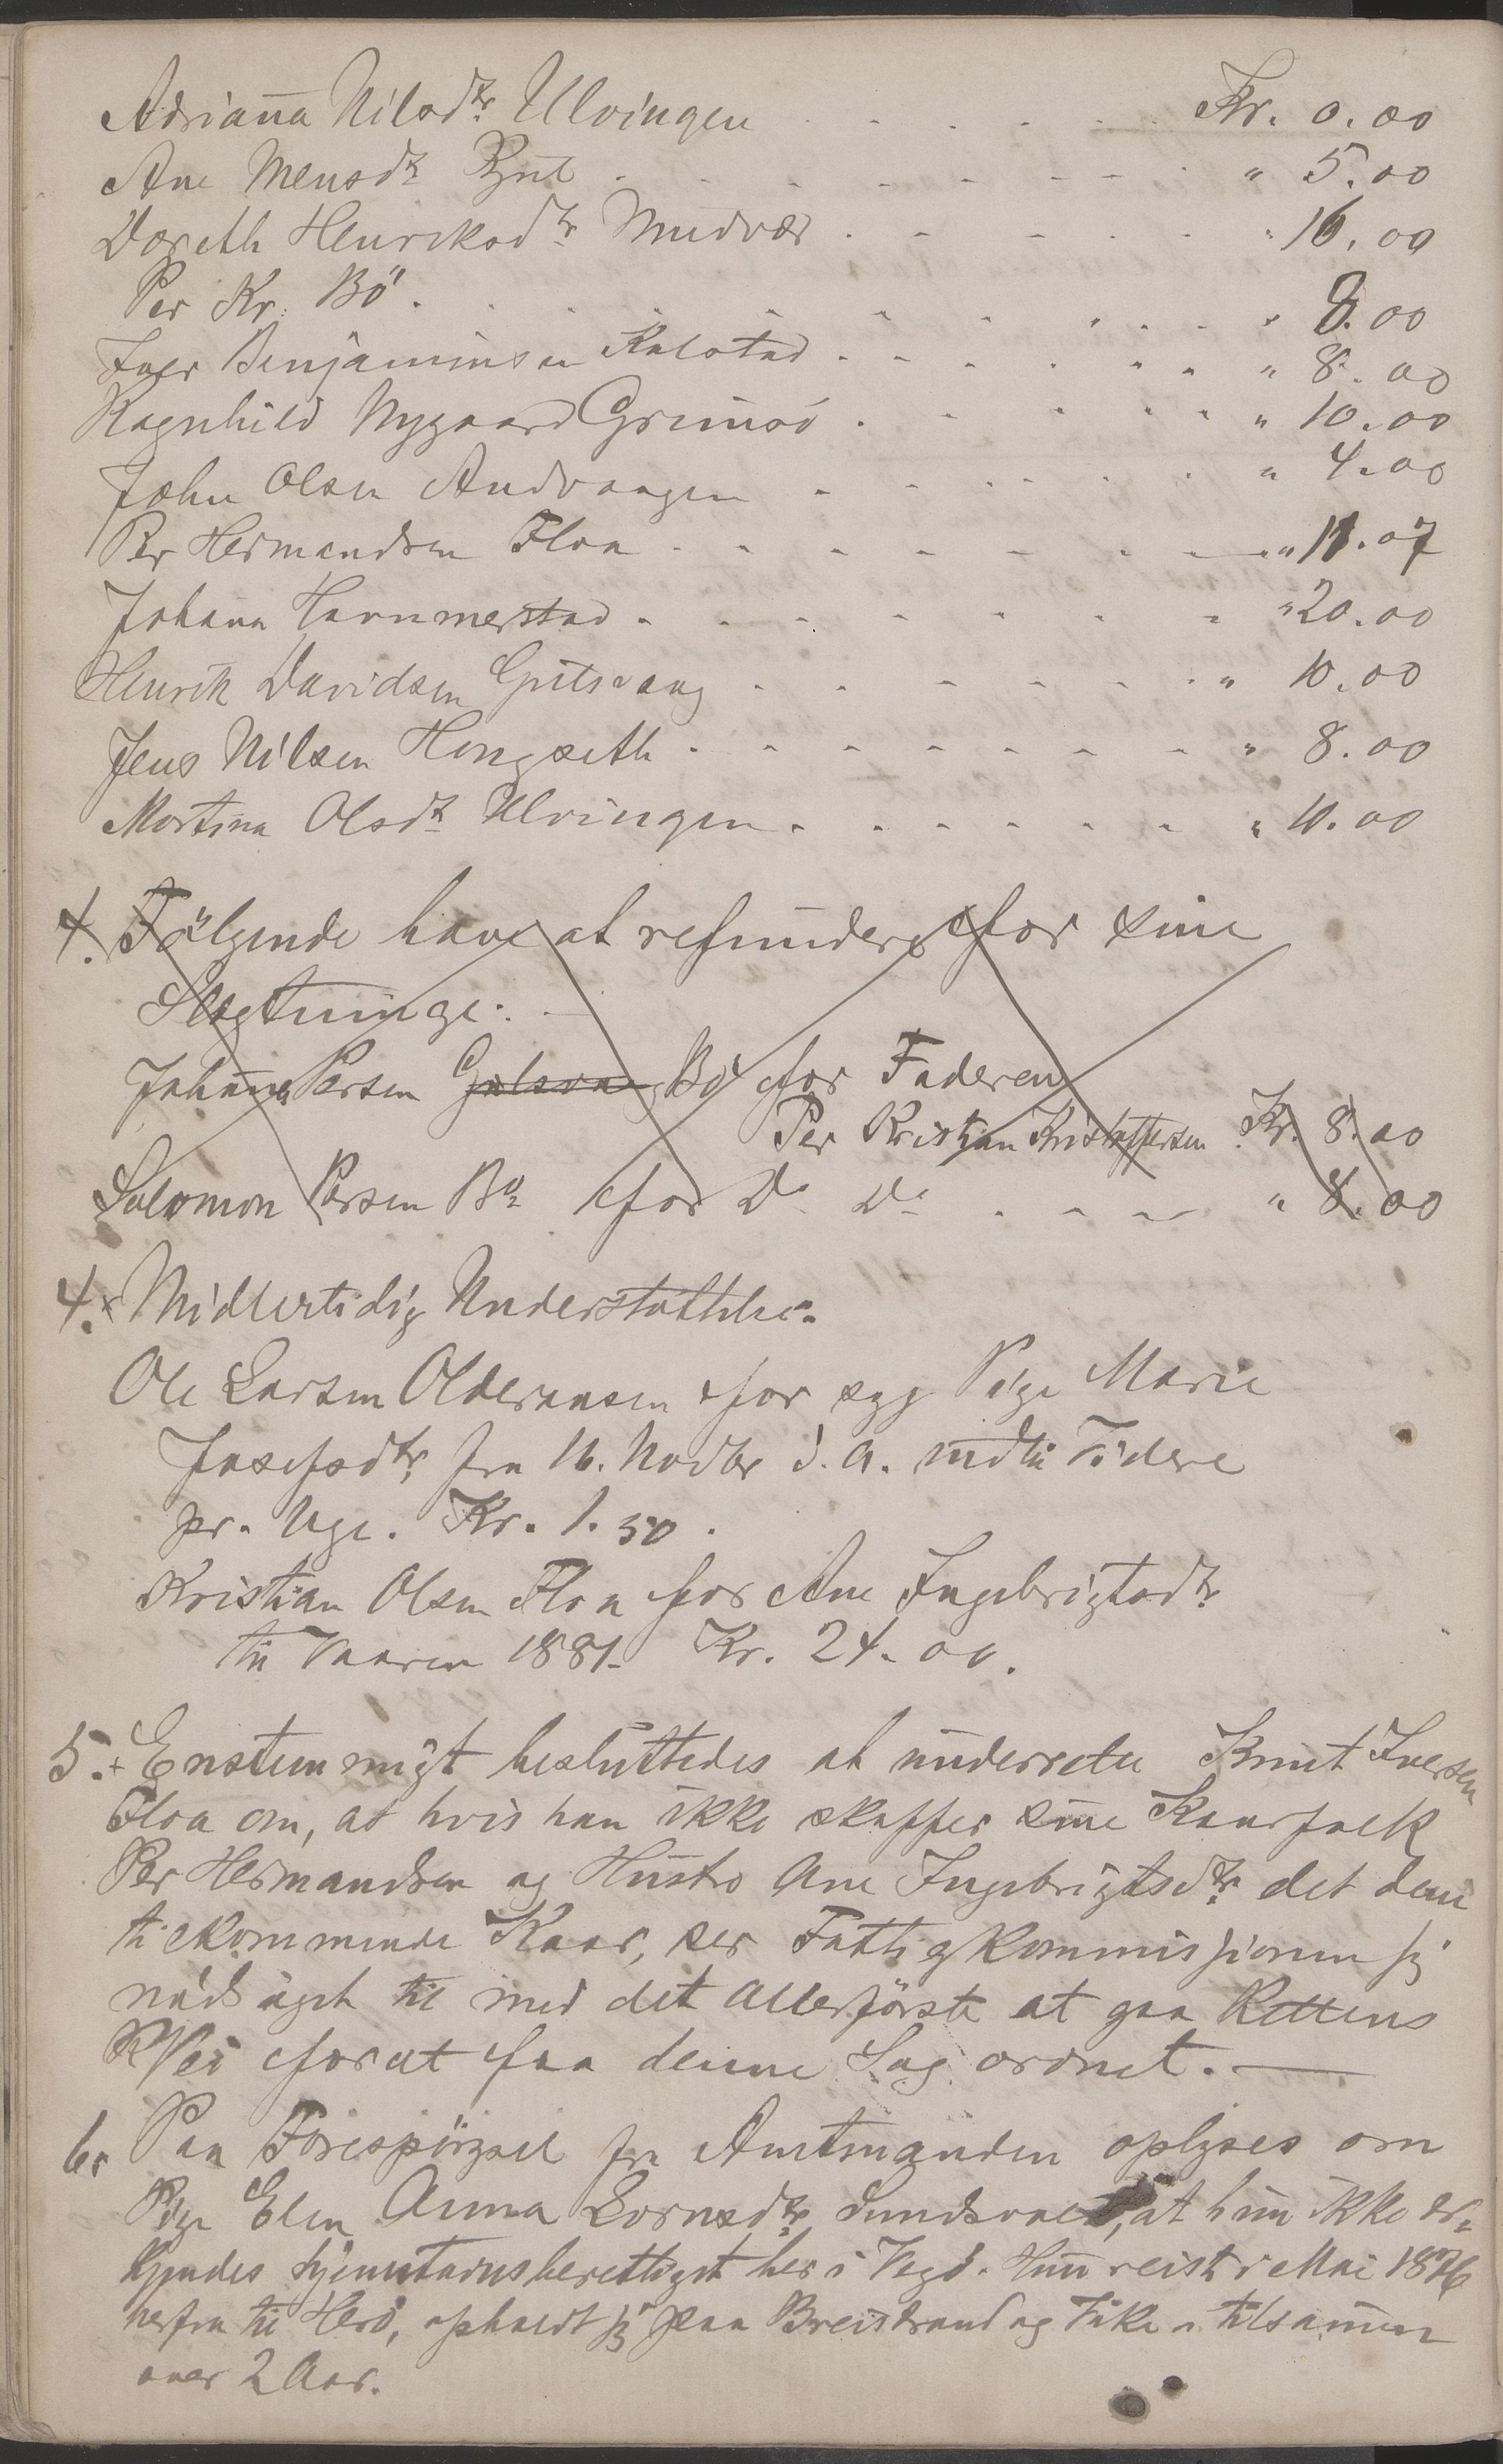 Adrianna Nilsdtr Ulvingen . . . . . Kr. 0.00
Ane Mensdtr Rynl . . . . . " 5.00
Doreth Henriksdtr Mudvær . . . . . " 16.00
Per Kr. Bö . . . . . " 8.00
Iver Benjaminsen Kalstad . . . . . " 8.00
Ragnhild Nygaard Grimsö . . . . . " 10.00
John Olsen Andvaagen . . . . . " 4.00
Per Hermandsen Floa . . . . . " 11.07
Johana Hammerstad . . . . . " 20.00
Henrik Davidsen Gulsvaag . . . . . " 10.00
Jens Nilsen Hongseth . . . . . " 8.00
Martina Olsdtr Ulvingen . . . . . " 10.00
4. Fölgende have at refundere for sine
Slægtninge:
Johann Persen Gulsvaag Bö for Faderen
Per Kristian Kristoffersen Kr. 8.00
Salomon Persen Bö for Do Do . . . " 8.00
4. Midlertidig Understöttelse.
Ole Larsen Olderaasen for syg Pige Marie
Josefsdtr fra 16. Novbr d. A. indtil Videre
pr. Uge. Kr. 1.50.
Kristian Olsen Floa for Ane Ingebrigtsdtr
til Vaaren 1881. Kr. 24.00.
5. Enstemmigt besluttedes at underrette Knut Iversen
Floa om, at hvis han ikke skaffer sine Kaarfolk
Per Hermandsen og Hustro Ane Ingebrigtsdtr det dem
tilkommende Kaar, ser Fattigkommissionen sig
nödsaget til med det allerförste at gaa Rettens
Vei forat faa denne Sag ordnet.
6. Paa Forespörgsel fra Amtmanden oplyses om
Pige Elen Anna Lornsdtr Sundsvold, at hun ikke er=
kjendes hjemstavnsberettiget her i Vegö. Hun reiste i Mai 1876
herfra til Herö, opholdt sig paa Breistrand og tilsammen
over 2 Aar.